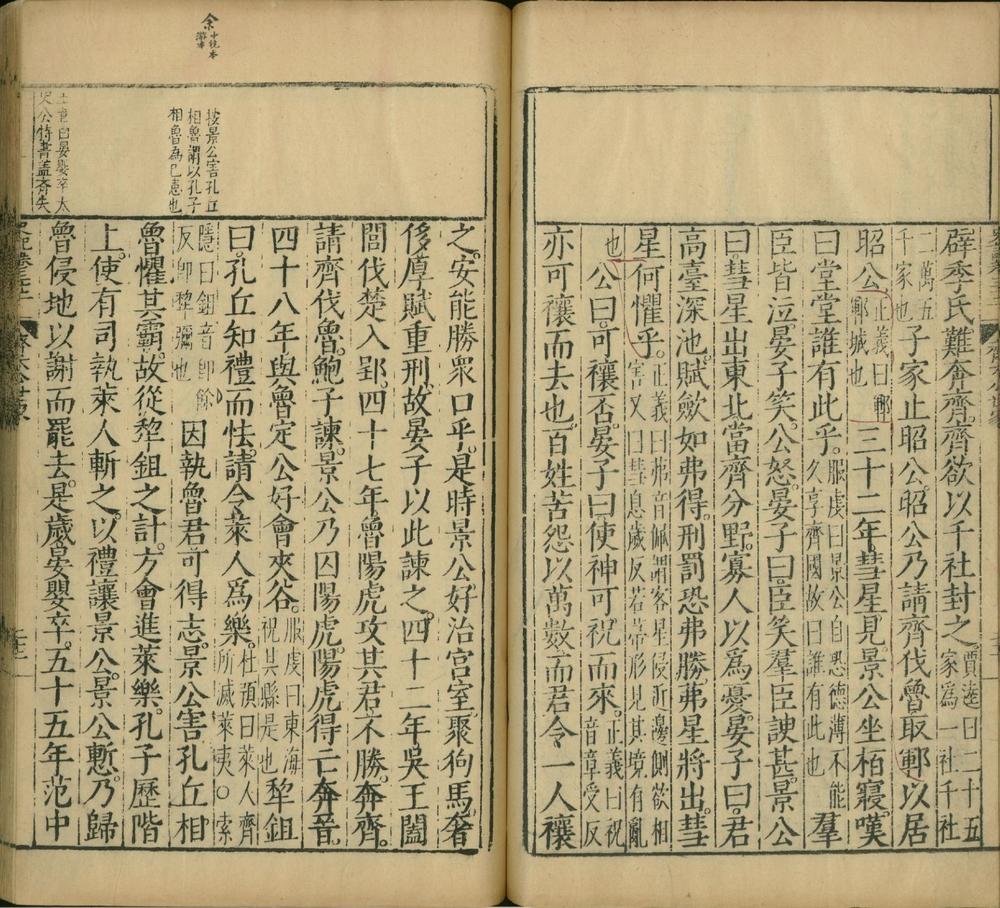 辟季氏難奔齊齊欲以千社封之賈逵曰二十五家為一社千社
二萬五千家也子家止昭公昭公乃請齊伐魯取鄆以居
昭公正義曰鄆鄆城也三十二年彗星見景公坐栢寢嘆
曰堂堂誰有此乎服虔曰景公自恐德薄不能久享齊國故曰誰有此也羣
臣皆泣晏子笑公怒晏子曰臣笑羣臣諛甚景公
曰彗星出東北當齊分野寡人以為憂晏子曰君
高臺深池賦歛如弗得刑罰恐弗勝茀星將出彗
星何懼乎正義曰茀音佩謂客星侵近邊側欲相害又曰彗息歲反若帚形見其境有亂
也公曰可禳否晏子曰使神可祝而來正義曰祝音章受反
亦可禳而去也百姓苦怨以萬數而君令一人禳
余
按景公害孔丘
相魯謂以孔子
相魯為己患也
曰晏嬰卒太
史公特書蓋齊失
之安能勝衆口乎是時景公好治宮室聚狗馬奢
侈厚賦重刑故晏子以此諫之四十二年吳王闔
閭伐楚入郢四十七年魯陽虎攻其君不勝奔齊
請齊伐魯鮑子諫景公乃囚陽虎陽虎得亡奔晉
四十八年與魯定公好會夾谷服虔曰東海祝其縣是也犂鉏
曰孔丘知禮而怯請令萊人爲樂杜預曰萊人齊所滅萊夷○索
隱曰鉏音即餘反即犂彌也因執魯君可得志景公害孔丘相
魯懼其霸故從犂鉏之計方會進萊樂孔子歷階
上使有司執萊人斬之以禮讓景公景公慙乃歸
魯侵地以謝而罷去是歲晏嬰卒五十五年范中